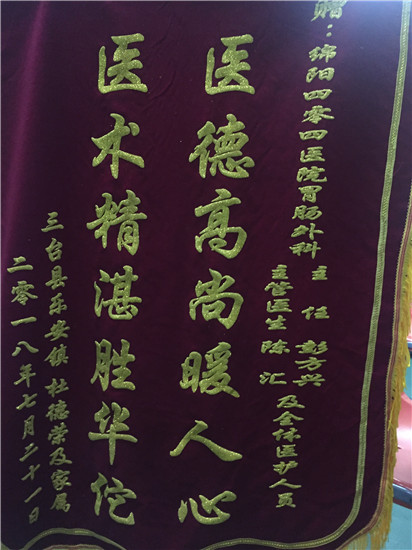 赠：绵阳四零四医院胃肠外科 主任 彭方兴
主管医生 陈汇 及全体医护人员
医德高尚暖人心
医术精湛胜华佗
三台县乐安镇 杜德荣及家属
二零一八年七月二十一日